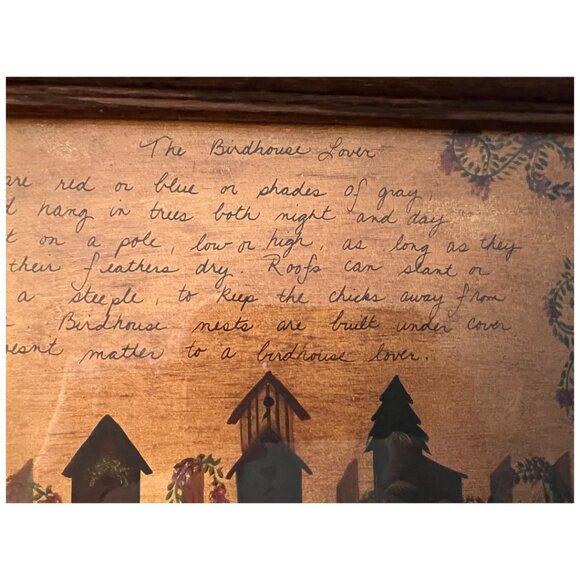 The Birdhouse Lover
are red or blue or shades of gray,
hang in trees both night and day
on a pole, low or high, as long as they
their feathers dry. Roofs can slant or
a steeple, to keep the chicks away from
Birdhouse nests are built under cover
oesnt matter to a birdhouse lover.